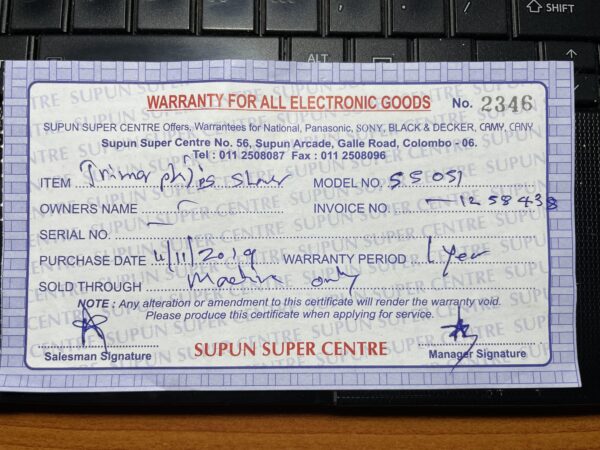 SHIFT
ALT
WARRANTY FOR ALL ELECTRONIC GOODS No. 2346
SUPUN SUPER CENTRE Offers, Warrantees for National, Panasonic, SONY, BLACK & DECKER, CAMY, CANY
Supun Super Centre No. 56, Supun Arcade, Galle Road, Colombo - 06.
Tel : 011 2508087 Fax : 011 2508096
ITEM Trimer philips Shaver MODEL NO. S5051
OWNERS NAME INVOICE NO. 1258438
SERIAL NO.
PURCHASE DATE 4/11/2019 WARRANTY PERIOD 1 year
SOLD THROUGH Machine only
NOTE : Any alteration or amendment to this certificate will render the warranty void.
Please produce this certificate when applying for service.
Salesman Signature SUPUN SUPER CENTRE Manager Signature